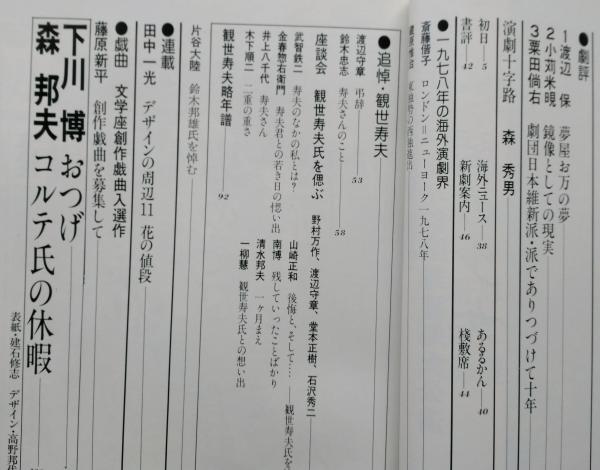 ●劇評
1 渡辺 保 夢屋お万の夢
2 小苅米晛 鏡像としての現実
3 栗田倘右 劇団日本維新派・派でありつづけて十年
演劇十字路 森 秀男
初日―5 海外ニュース―38 あるるかん―40
書評―42 新劇案内―46 桟敷席―44
●一九七八年の海外演劇界
斎藤偕子 ロンドン=ニューヨーク一九七八年
●追悼・観世寿夫
渡辺守章 弔辞 53
鈴木忠志 寿夫さんのこと 58
座談会 観世寿夫氏を偲ぶ 野村万作、渡辺守章、堂本正樹、石沢秀二
武智鉄二 寿夫のなかの私とは? 山崎正和 後悔と、そして…
金春惣右衛門 寿夫君との若き日の想い出 南博 残していったことばかり 観世寿夫氏を
井上八千代 寿夫さん 清水邦夫 一ヶ月まえ
木下順二 二重の重さ 一柳慧 観世寿夫氏との想い出
観世寿夫略年譜 92
片谷大陸 鈴木邦雄氏を悼む
●連載
田中一光 デザインの周辺11 花の値段
●戯曲 文学座創作戯曲入選作
藤原新平 創作戯曲を募集して
下川 博 おつげ
森 邦夫 コルテ氏の休暇
表紙・建石修志 デザイン・高野邦